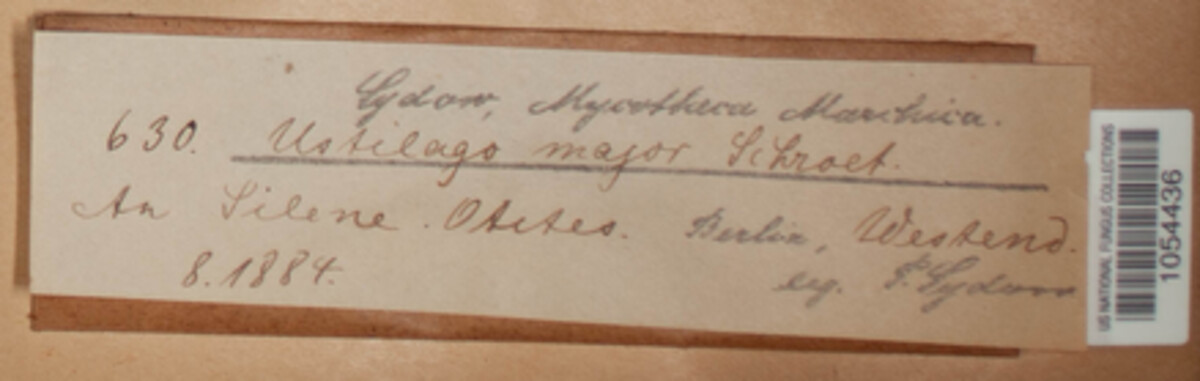 Sydow, Mycotheca Marchica.
630. Ustilago major Schroet.
An Silene Otites. Berlin, Westend.
8.1884. leg. P. Sydow
US NATIONAL FUNGUS COLLECTIONS
1054436